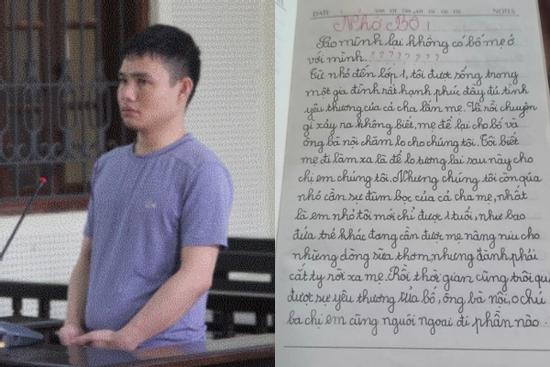 DATE
NOTES
Nhớ Bố!
Sao mình lại không có bố mẹ ở
với mình ???????
Từ nhỏ đến lớp 1, tôi được sống trong
một gia đình rất hạnh phúc đầy đủ tình
yêu thương của cả cha lẫn mẹ. Và rồi chuyện
gì xảy ra không biết, mẹ để lại cho bố và
ông bà nội chăm lo cho chúng tôi. Tôi biết
mẹ đi làm xa là để lo tương lai sau này cho
chị em chúng tôi. Nhưng chúng tôi còn quá
nhỏ cần sự đùm bọc của cả cha mẹ, nhất
là em nhỏ tôi mới chỉ được 1 tuổi, như bao
đứa trẻ khác đang cần được mẹ nâng niu cho
những dòng sữa thơm, nhưng đành phải
cất ty rời xa mẹ. Rồi thời gian cũng trôi qua
được sự yêu thương của bố, ông bà nội, o chú
ba chị em cũng nguôi ngoai đi phần nào.